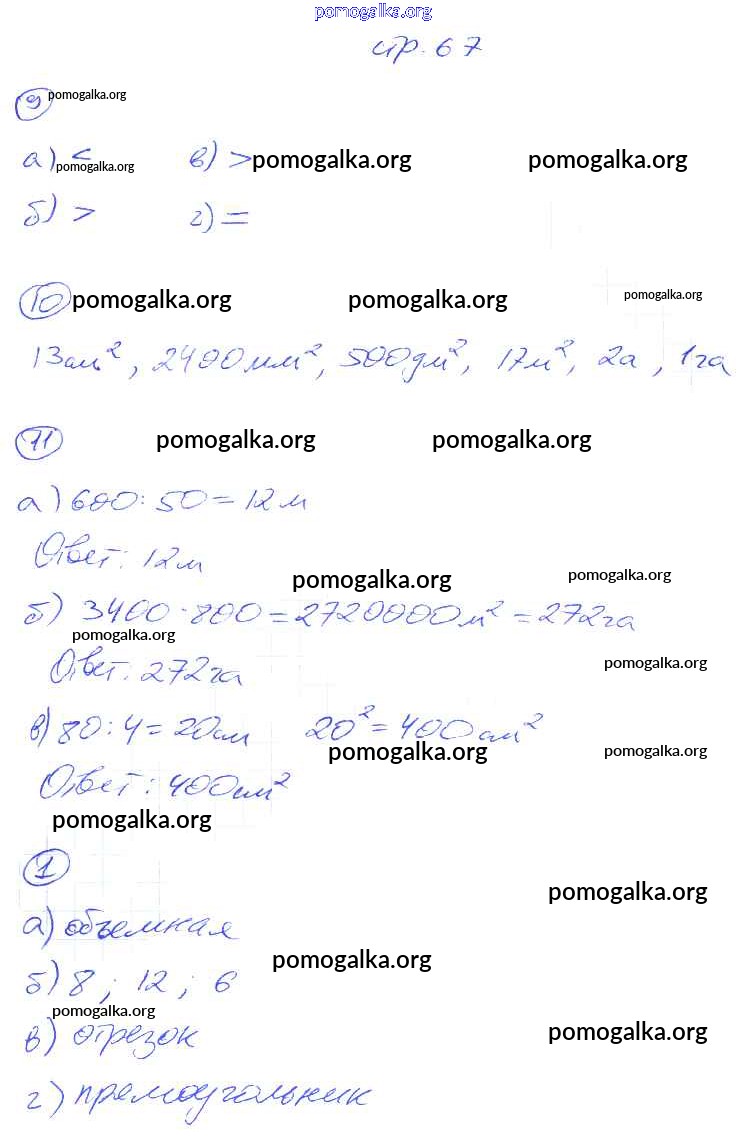 pomogalka.org
стр. 67
9 pomogalka.org
а) < в) > pomogalka.org pomogalka.org
pomogalka.org
б) > г) =
10 pomogalka.org pomogalka.org pomogalka.org
13см², 2400мм², 500дм², 17м², 2а, 1га
11 pomogalka.org pomogalka.org
а) 600:50=12м
Ответ: 12м
pomogalka.org pomogalka.org
б) 3400·800=2720000м²=272га
pomogalka.org
Ответ: 272га pomogalka.org
в) 80:4=20см 20²=400см²
pomogalka.org pomogalka.org
Ответ: 400см²
pomogalka.org
1
pomogalka.org
а) объемная
pomogalka.org
б) 8; 12; 6
pomogalka.org
в) отрезок pomogalka.org
г) прямоугольник